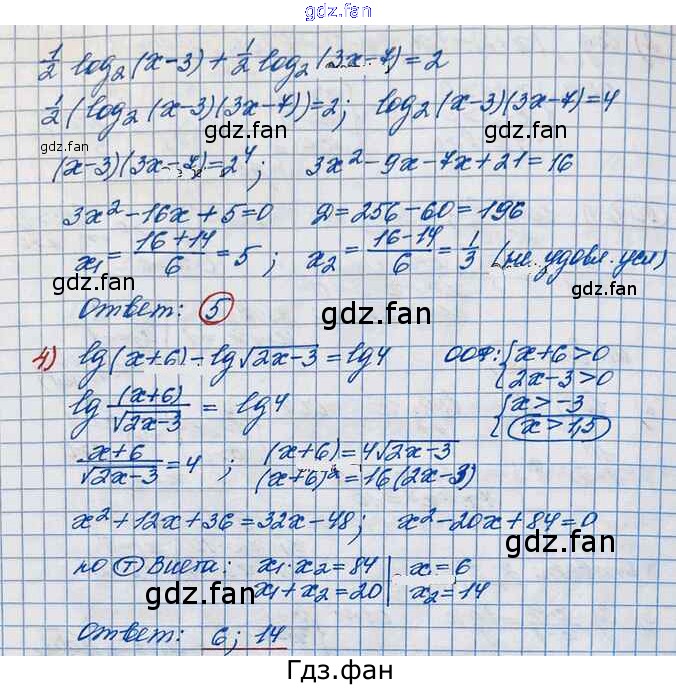 gdz.fan
1/2 log₂(x-3) + 1/2 log₂(3x-7) = 2
1/2 (log₂(x-3)(3x-7)) = 2; log₂(x-3)(3x-7) = 4
gdz.fan gdz.fan gdz.fan
(x-3)(3x-7) = 2⁴; 3x² - 9x - 7x + 21 = 16
3x² - 16x + 5 = 0 Д = 256 - 60 = 196
x₁ = (16+14)/6 = 5; x₂ = (16-14)/6 = 1/3 (не удовл. усл)
gdz.fan
Ответ: 5
gdz.fan
4) lg(x+6) - lg√(2x-3) = lg4 ООФ: { x+6>0
{ 2x-3>0
gdz.fan
lg (x+6)/√(2x-3) = lg4 { x > -3
{ x > 1,5
gdz.fan gdz.fan
(x+6)/√(2x-3) = 4; (x+6) = 4√(2x-3)
(x+6)² = 16(2x-3)
x² + 12x + 36 = 32x - 48; x² - 20x + 84 = 0
gdz.fan
по Т Виета: x₁·x₂ = 84 | x₁ = 6
x₁ + x₂ = 20 | x₂ = 14
gdz.fan gdz.fan
Ответ: 6; 14
Гдз.фан